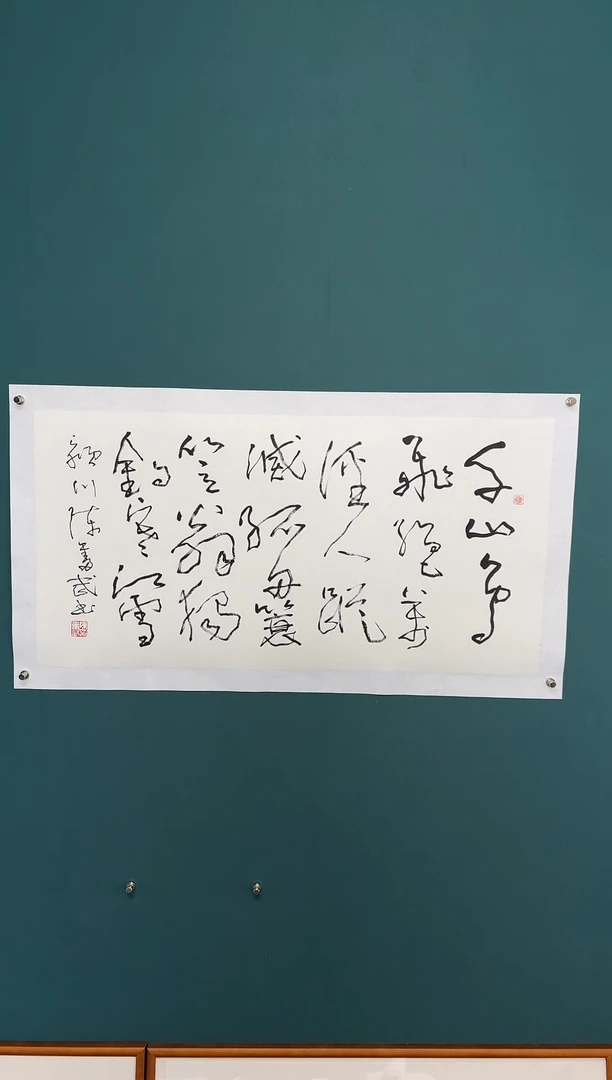 千山鳥
飛絕萬
徑人蹤
滅孤舟蓑
笠翁獨
釣寒江雪
潁川陳武書